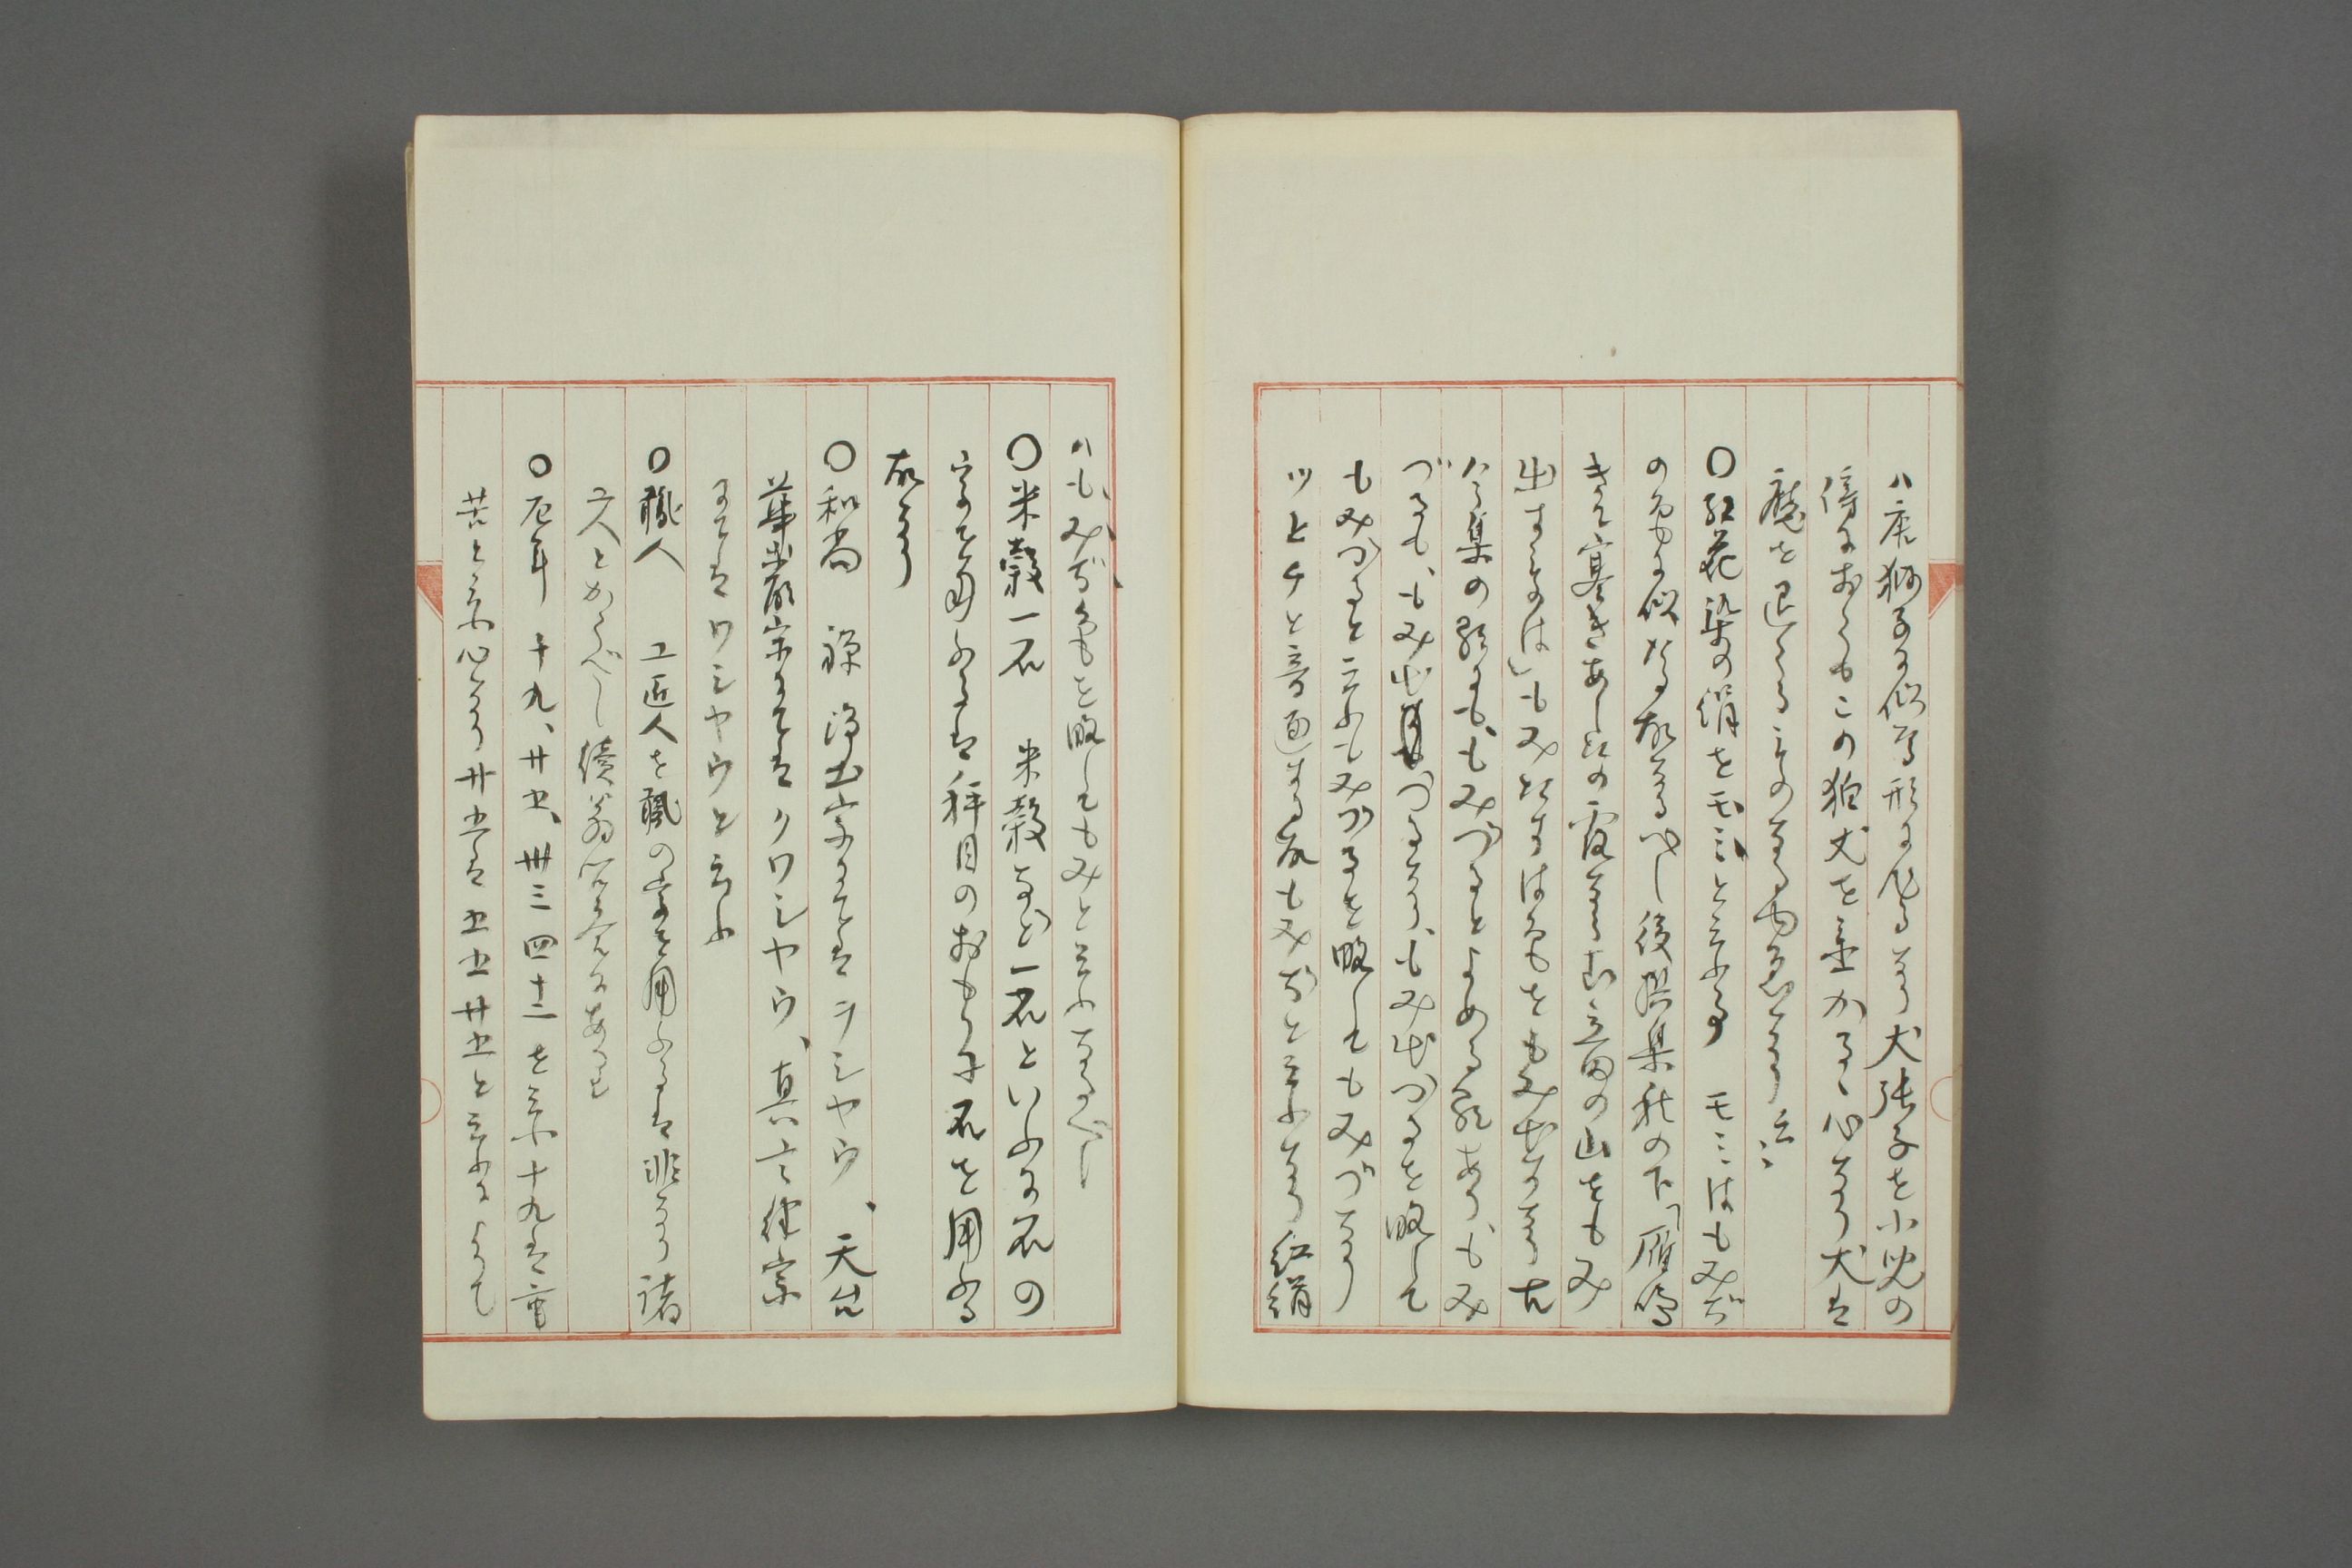 ハ唐獅子に似する形に作るなり犬張子を小児の
傍におくもこの狛犬を置かるゝ心なり犬は
魔を退くるものなる由なり云〻
〇紅花染の絹をモミと云ふ事　モミはもみぢ
の色に似たる故なるべし後撰集秋の下「雁鳴
きて寒きあしたの露ならし立田の山をもみ
出すものは」もみ出すは色をもみ出すなり古
今集の歌にも、もみづるとよめる歌あり、もみ
づるも、もみ出づるなり、もみ出づるを略して
もみづると云ふもみづるを略してもみづなり
ツとチと音通する故もみぢと云ふなり紅絹
ハもみぢ色を略してもみと云ふなるべし
〇米穀一石　米穀など一石といふに石の
字を用ふるは秤目のおもりに石を用ふる
故なり
〇和尚　禅浄土宗にてはヲシヤウ、天台
華厳宗にてはクワシヤウ、真言律宗
にてはワシヤウと云ふ
〇職人　工匠人を職の字を用ふるは非なり諸
工人とかくべし
〇厄年　十九、廿五、卅三四十二を云ふ十九は重
苦と云ふ心なり廿五は五五廿五と云ふによりて